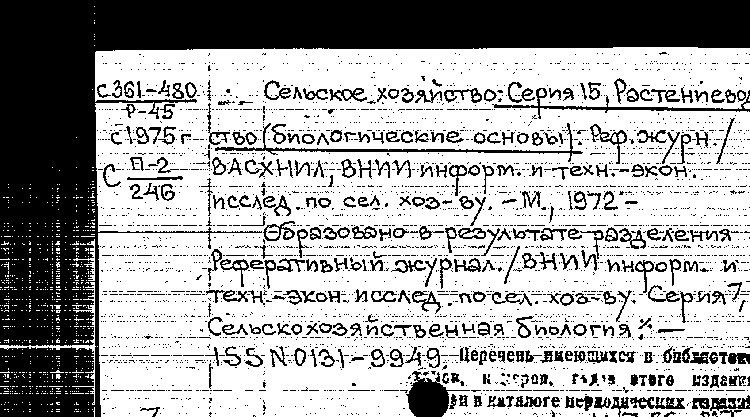 с361-480
Р-45
с 1975 г
С П-2
246
Сельское хозяйство: Серия 15, Растениевод
ство (биологические основы): Реф. журн. /
ВАСХНИЛ, ВНИИ информ. и техн.-экон.
исслед. по сел. хоз-ву. - М., 1972 -
Образовано в результате разделения
Реферативный журнал. / ВНИИ информ. и
техн.-экон. исслед. по сел. хоз-ву. Серия 7,
Сельскохозяйственная биология
ISSN 0131-9949. Перечень имеющихся в библиотеке
этого издания
в каталоге периодических